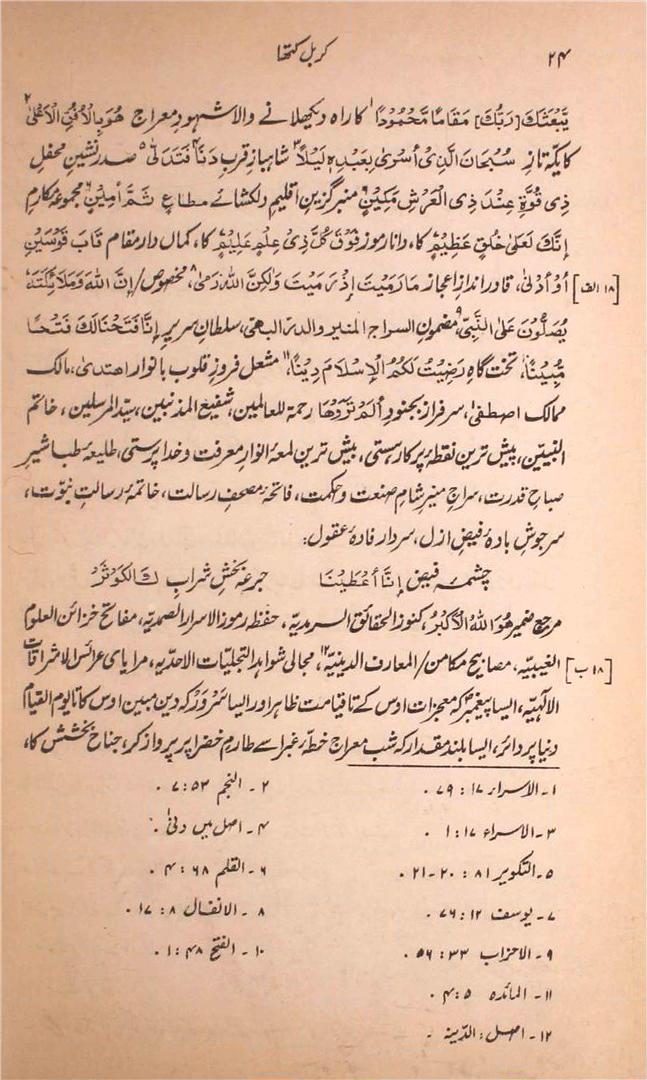 ۲۴ کربل کتھا
یَّبْعَثَکَ [رَبُّکَ] مَقَامًا مَّحْمُوْدًا۱ کا راہ دیکھلانے والا شہودِ معراج ھُوَ بِالْاُفُقِ الْاَعْلٰی۲
کا یکّہ تازِ سُبْحَانَ الَّذِیْ اَسْرٰی بِعَبْدِہٖ لَیْلًا۳ شاہبازِ قربِ دَنَا۴ فَتَدَلّٰی۵ صدر نشینِ محفلِ
ذِی قُوَّةٍ عِنْدَ ذِی الْعَرْشِ مَکِیْنٍ۵ منبر گزینِ اقلیمِ دلکشائے مطاعٍ ثَمَّ اَمِیْنٍ۶ مجموعۂ مکارمِ
اِنَّکَ لَعَلٰی خُلُقٍ عَظِیْمٍ کا، دانا رموزِ فَوْقَ کُلِّ ذِیْ عِلْمٍ عَلِیْمٌ کا، کماں دار مقام قَابَ قَوْسَیْنِ
[۱۸ الف] اَوْ اَدْنٰی، قادر اندازِ اعجاز مَا رَمَیْتَ اِذْ رَمَیْتَ وَلٰکِنَّ اللہَ رَمٰی۸، مخصوصِ / اِنَّ اللہَ وَمَلَائِکَتَہٗ
یُصَلُّوْنَ عَلَی النَّبِیِّ۹، مضمونِ السراج المنیر والدر البھی، سلطانِ سریرِ اِنَّا فَتَحْنَا لَکَ فَتْحًا
مُّبِیْنًا۱۰، تخت گاہِ رَضِیْتُ لَکُمُ الْاِسْلَامَ دِیْنًا۱۱، مشعل فروزِ قلوب بانوارِ اھتدیٰ، مالک
ممالکِ اصطفیٰ، سرفراز بجنودِ اَلَمْ تَرَوْھَا رحمة للعالمین، شفیع المذنبین، سیّد المرسلین، خاتم
النبیّین، پیش ترین نقطۂ پرکارِ ہستی، بیش ترین لمعۂ انوارِ معرفت و خدا پرستی، طلیعۂ طباشیرِ
صباحِ قدرت، سراجِ منیرِ شامِ صنعت و حکمت، فاتحۂ مصحفِ رسالت، خاتمۂ رسالتِ نبوّت،
سرجوشِ بادۂ فیضِ ازل، سردارِ فادۂ عقول:
چشمہ فیضِ اِنَّا اَعْطَیْنَا جرعہ بخشِ شرابِ کَالْکَوْثَرْ
مرجعِ ضمیرِ ھُوَ اللہُ الْاَکْبَرُ، کنوز الحقائق السرمدیہ، حفظہ رموز الاسرار الصمدیہ، مفاتح خزائن العلوم
[۱۸ ب] الغیبیہ، مصابیح مکامن / المعارف الدینیہ۱۲، مجالی شواہد التجلیات الاحدیہ، مرایای عرائس الاشراقات
الالٰہیہ، ایسا پیغمبر کہ معجزات اوس کے تا قیامت ظاہر اور ایسا سَرْوَر کہ دین مبین اوس کا تا یوم القیام
دنیا پر دائر، ایسا بلند مقدار کہ شبِ معراج خطّۂ غبرا سے طارمِ خضرا پر پرواز کر، جناح بخشش کا،
۱۔ الاسراء ۱۷ : ۷۹۔ ۲۔ النجم ۵۳ : ۷۔
۳۔ الاسراء ۱۷ : ۱۔ ۴۔ اصل میں دنیٰ۔
۵۔ التکویر ۸۱ : ۲۰-۲۱۔ ۶۔ القلم ۶۸ : ۴۔
۷۔ یوسف ۱۲ : ۷۶۔ ۸۔ الانفال ۸ : ۱۷۔
۹۔ الاحزاب ۳۳ : ۵۶۔ ۱۰۔ الفتح ۴۸ : ۱۔
۱۱۔ المائدہ ۵ : ۴۔
۱۲۔ اصل : الدّینہ۔